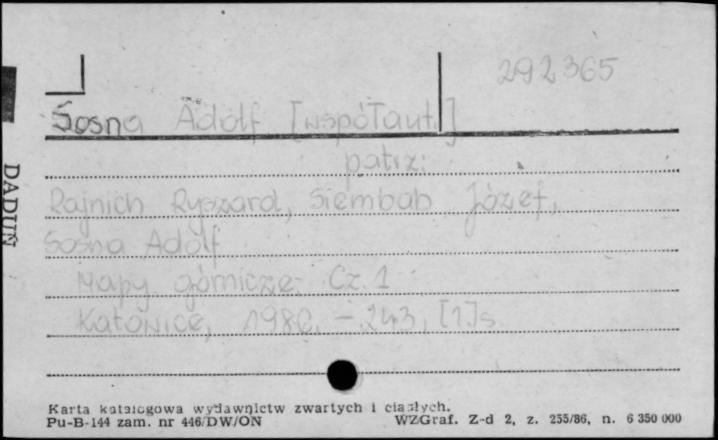 292365
Sosna Adolf [współaut.]
patrz:
Rajnich Ryszard, Siembab Józef,
Sosna Adolf
Mapy górnicze. Cz. 1
Katowice, 1980. – 243, [1] s
DADUŃ
Karta katalogowa wydawnictw zwartych i ciągłych.
Pu-B-144 zam. nr 446/DW/ON WZGraf. Z-d 2, z. 255/86, n. 6 350 000